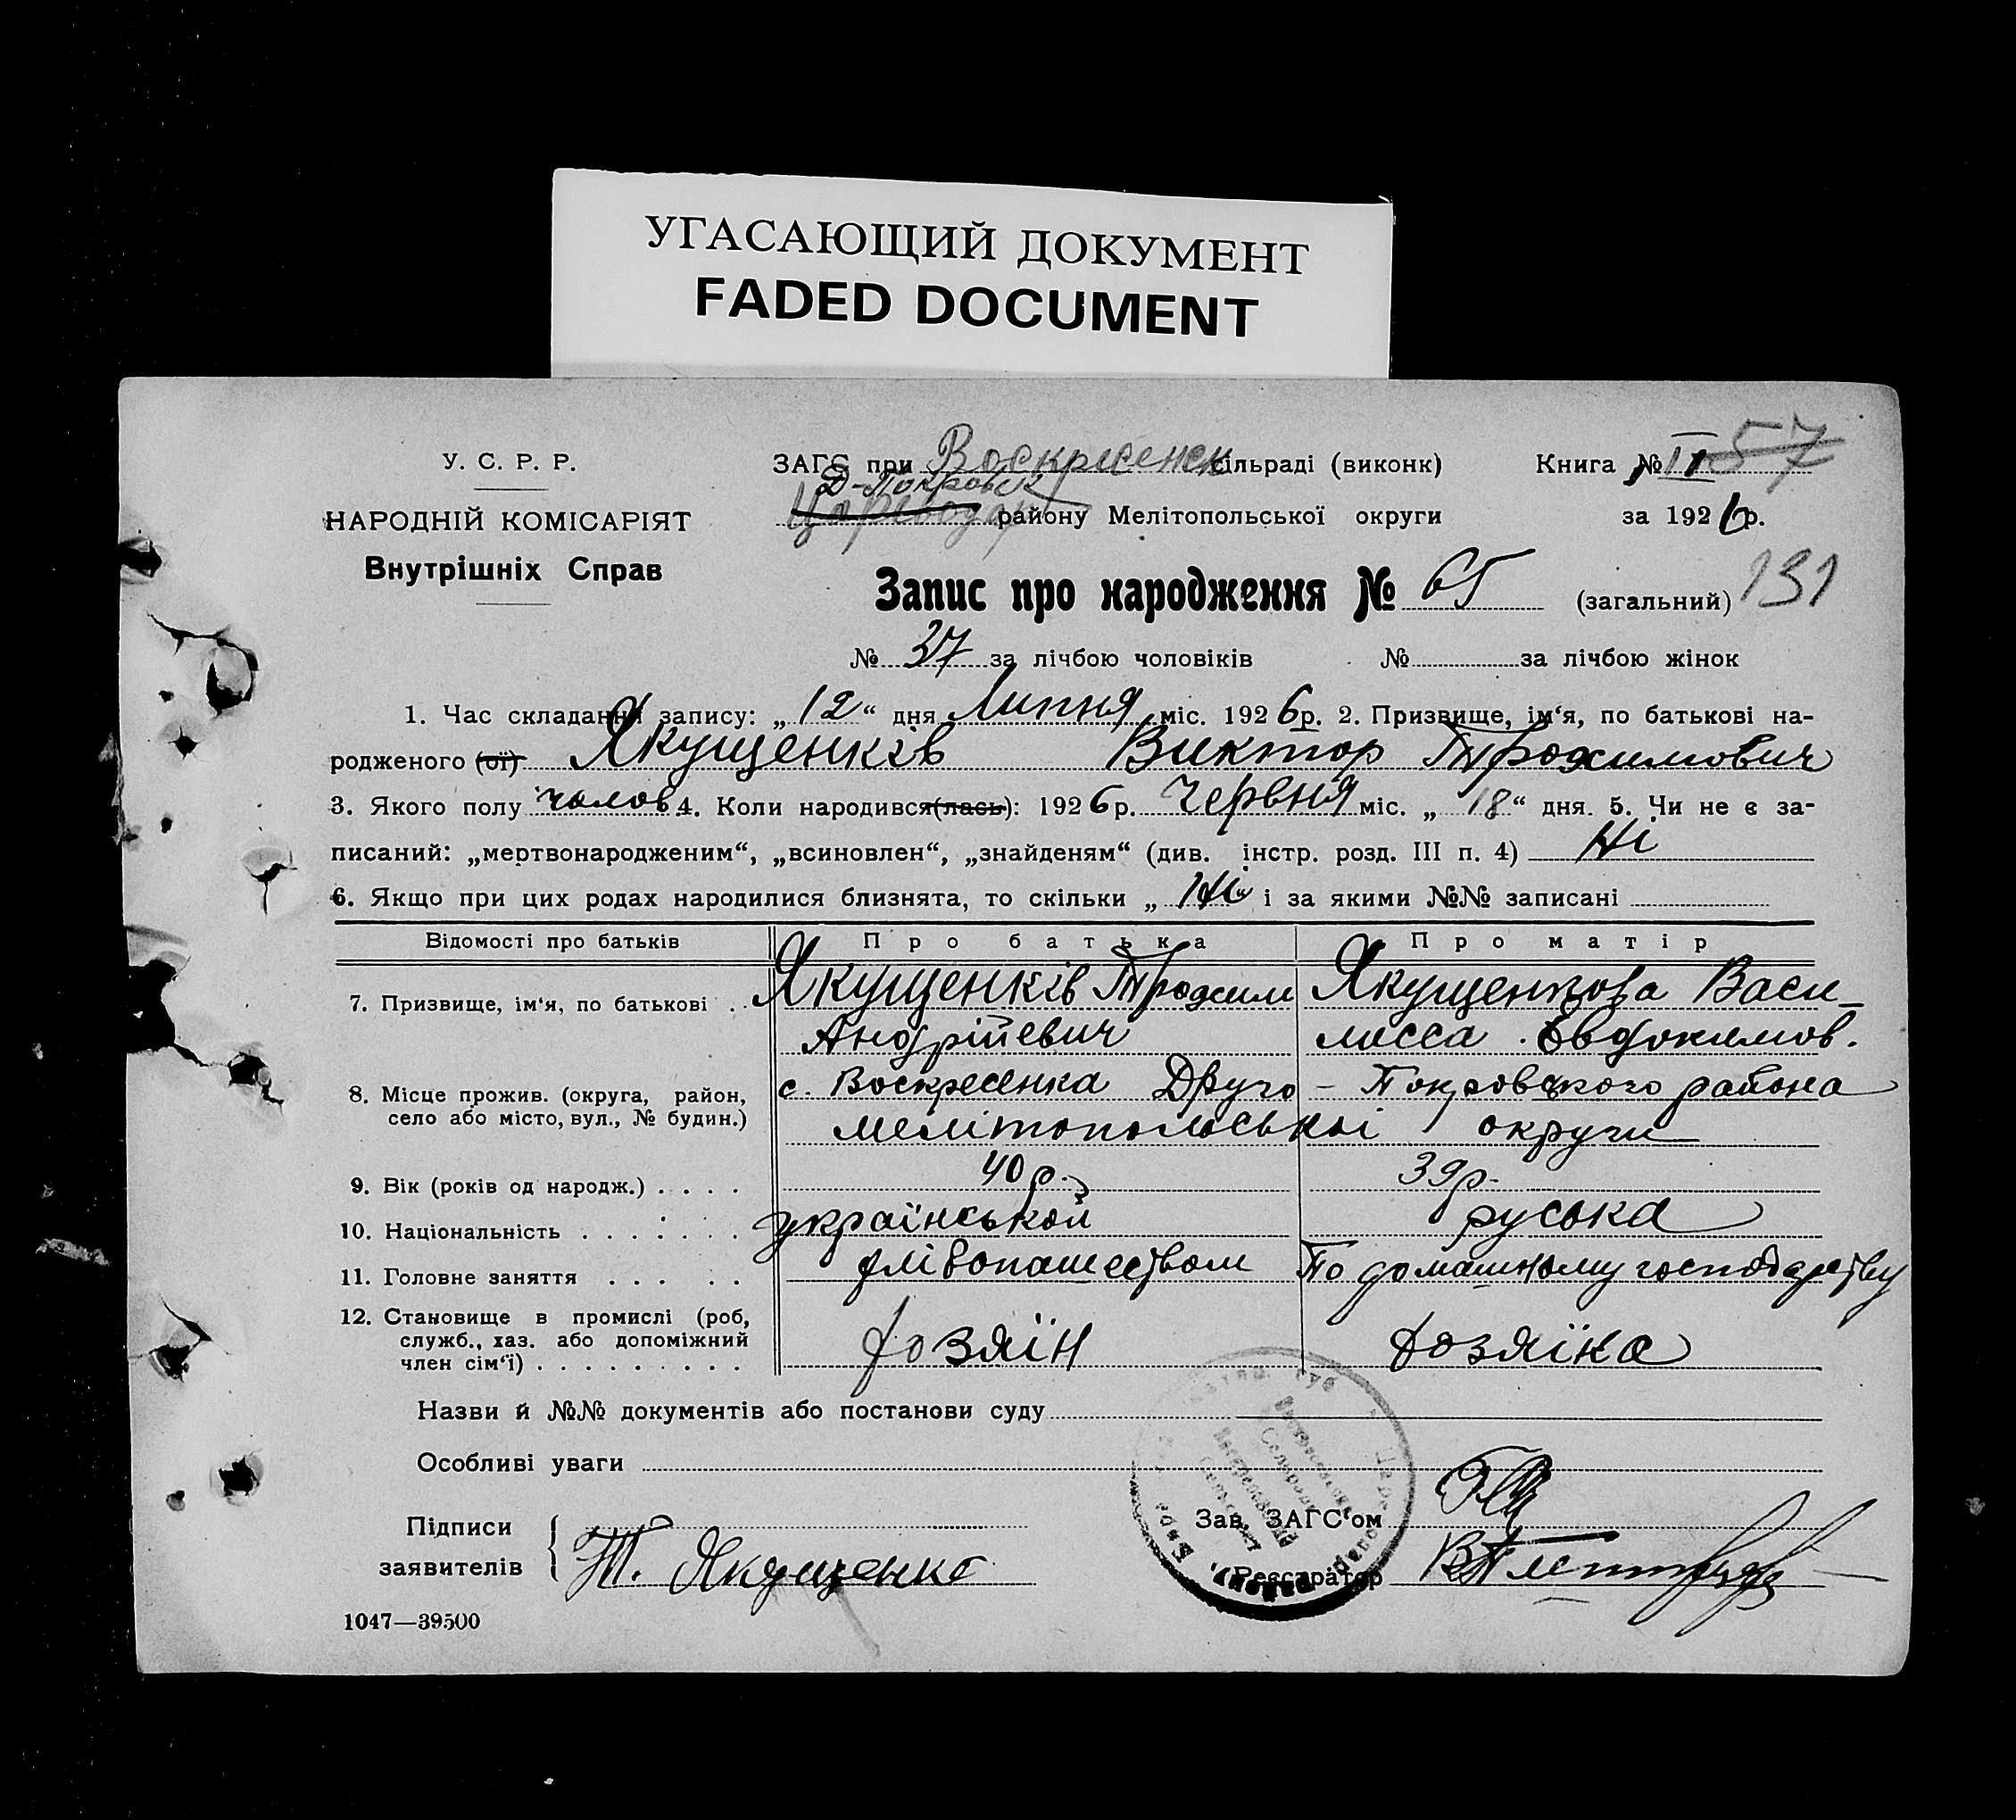 УГАСАЮЩИЙ ДОКУМЕНТ
FADED DOCUMENT
У. С. Р. Р.
НАРОДНІЙ КОМІСАРІЯТ
Внутрішніх Справ
ЗАГС при Воскресенск сільраді (виконк)
Д-Покровск
районy Мелітопольської округи
Книга № II 57
за 1926 р.
Запис про народження № 65 (загальний) 131
№ 37 за лічбою чоловіків № за лічбою жінок
1. Час складання запису: „12“ дня Липня міс. 1926 р. 2. Призвище, ім‘я, по батькові на-
родженого (ої) Якущенків Виктор Трохимович
3. Якого полу чолов 4. Коли народився(лась): 1926 р. Червня міс. „18“ дня. 5. Чи не є за-
писаний: „мертвонародженим“, „всиновлен“, „знайденям“ (див. інстр. розд. III п. 4) Ні
6. Якщо при цих родах народилися близнята, то скільки „Ні“ і за якими №№ записані
Відомості про батьків Про батька Про матір
7. Призвище, ім‘я, по батькові . . Якущенків Трохим Якущенкова Васи-
Андрійевич лисса Евдокимов.
8. Місце прожив. (округа, район, с. Воскресенка Друго - Покровського района
село або місто, вул., № будин.) мелітопольської округи
9. Вік (років од народж.) . . . . 40 р. 39 р.
10. Національність . . . . . . . українськой руська
11. Головне заняття . . . . . хлібопашеством По домашньому господарству
12. Становище в промислі (роб,
служб., хаз. або допоміжний хозяїн хозяїка
член сім‘ї) . . . . . . . . .
Назви й №№ документів або постанови суду
Особливі уваги
Підписи Зав. ЗАГС‘ом
заявителів Т. Якущенко Реєстратор
1047—39500